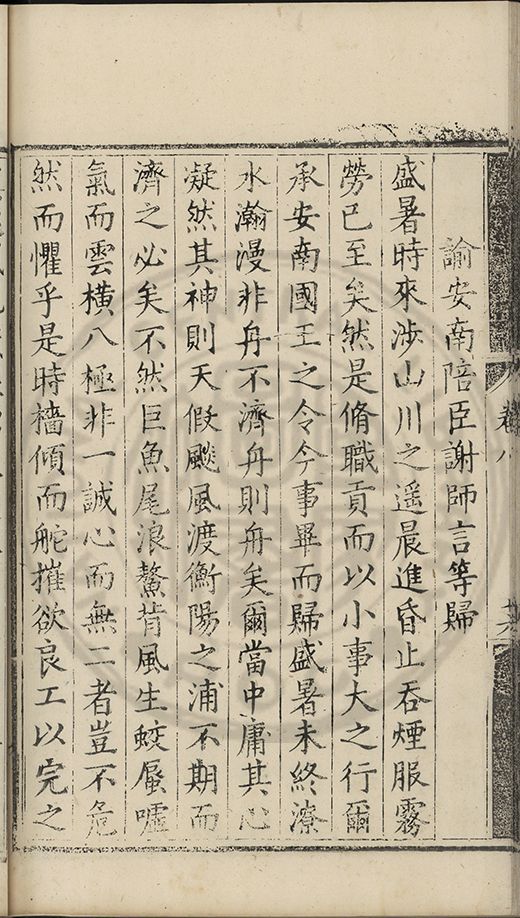 諭安南陪臣謝師言等歸
盛暑時來涉山川之遥晨進昏止吞煙服霧
勞已至矣然是脩職貢而以小事大之行爾
承安南國王之令今事畢而歸盛暑未終潦
水瀚漫非舟不濟舟則舟矣爾當中庸其心
凝然其神則天假颷風渡衡陽之浦不期而
濟之必矣不然巨魚尾浪鰲背風生蛟蜃噓
氣而雲橫八極非一誠心而無二者豈不危
然而懼乎是時檣傾而舵摧欲良工以完之
卷八